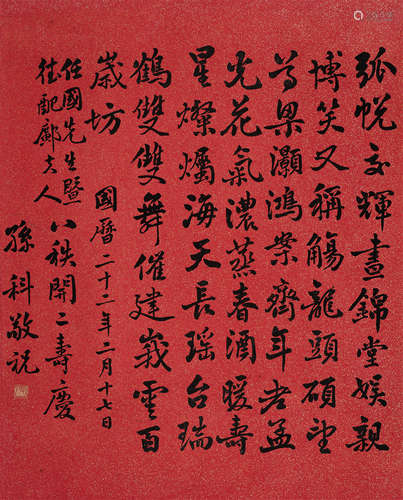 弧帨交輝晝錦堂娱親
博笑又稱觴龍頭碩望
梁灝鴻案齊年老孟
光花氣濃蒸春酒暖壽
星燦爛海天長瑶台瑞
鶴雙雙舞催建峩雲百
歲坊
國曆二十二年二月十七日
任國先生暨
德配鄺夫人
八秩開二壽慶
孫科敬祝